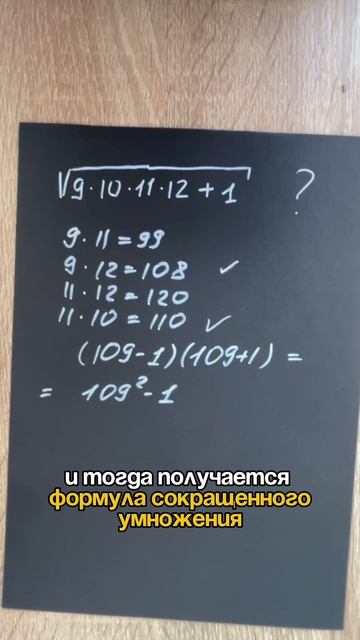 √9·10·11·12 + 1 ?
9·11 = 99
9·12 = 108 ✓
11·12 = 120
11·10 = 110 ✓
(109-1)(109+1) =
= 109² - 1
и тогда получается
формула сокращенного
умножения